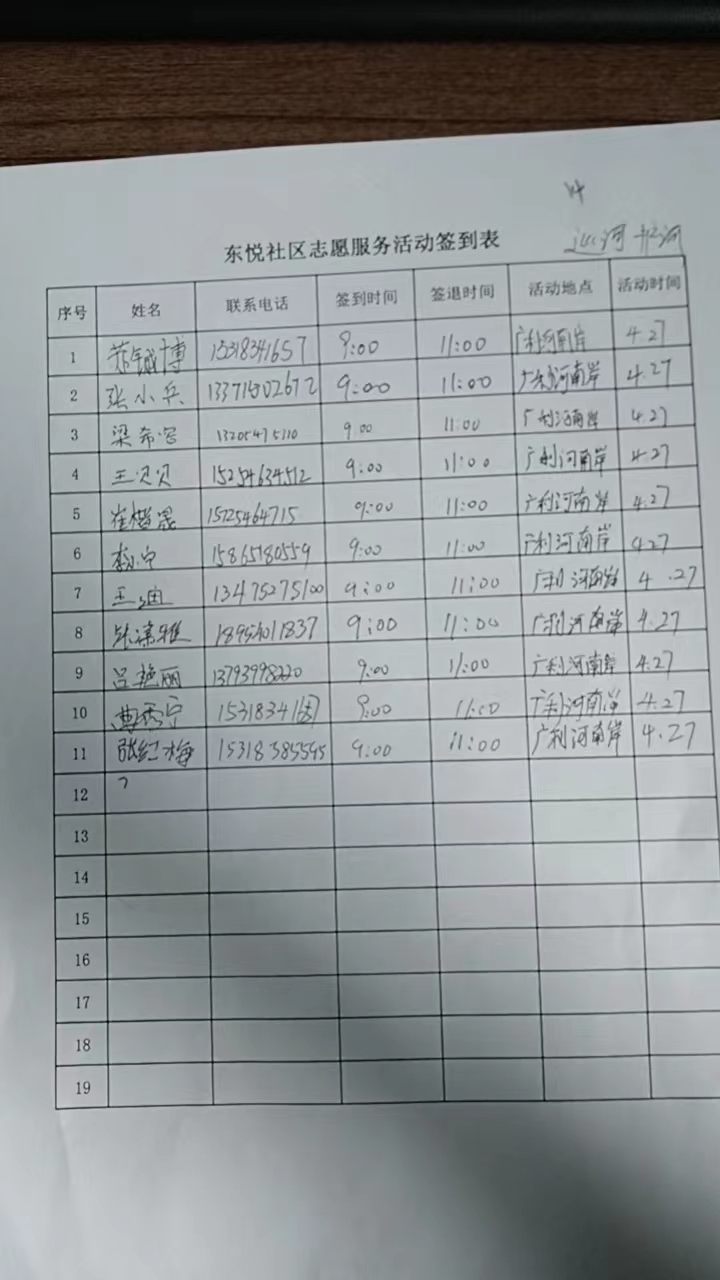 东悦社区志愿服务活动签到表
序号 姓名 联系电话 签到时间 签退时间 活动地点 活动时间
1 博 15318341657 9:00 11:00 广利河南岸 4.27
2 张小兵 13371502672 9:00 11:00 广利河南岸 4.27
3 梁希宫 13205475110 9:00 11:00 广利河南岸 4.27
4 王贝贝 15254634512 9:00 11:00 广利河南岸 4.27
5 崔楷晟 15725464715 9:00 11:00 广利河南岸 4.27
6 15865180559 9:00 11:00 广利河南岸 4.27
7 王迪 13475275100 9:00 11:00 广利河南岸 4.27
8 18954011837 9:00 11:00 广利河南岸 4.27
9 吕艳丽 13793998220 9:00 11:00 广利河南岸 4.27
10 曹秀宁 9:00 11:00 广利河南岸 4.27
11 张红梅 15318385595 9:00 11:00 广利河南岸 4.27
12
13
14
15
16
17
18
19